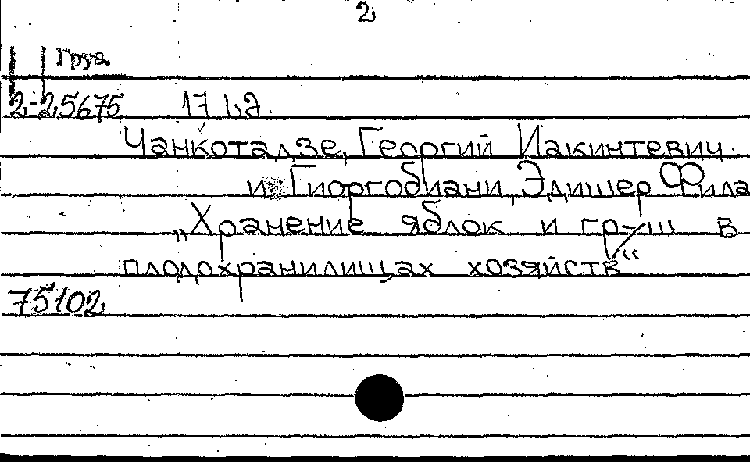 2
Груз.
2-25675 17 1,2
Чанкотадзе, Георгий Иакинтевич
и Гиоргобиани, Эдишер Фила
„Хранение яблок и груш в
плодохранилищах хозяйств“
75102